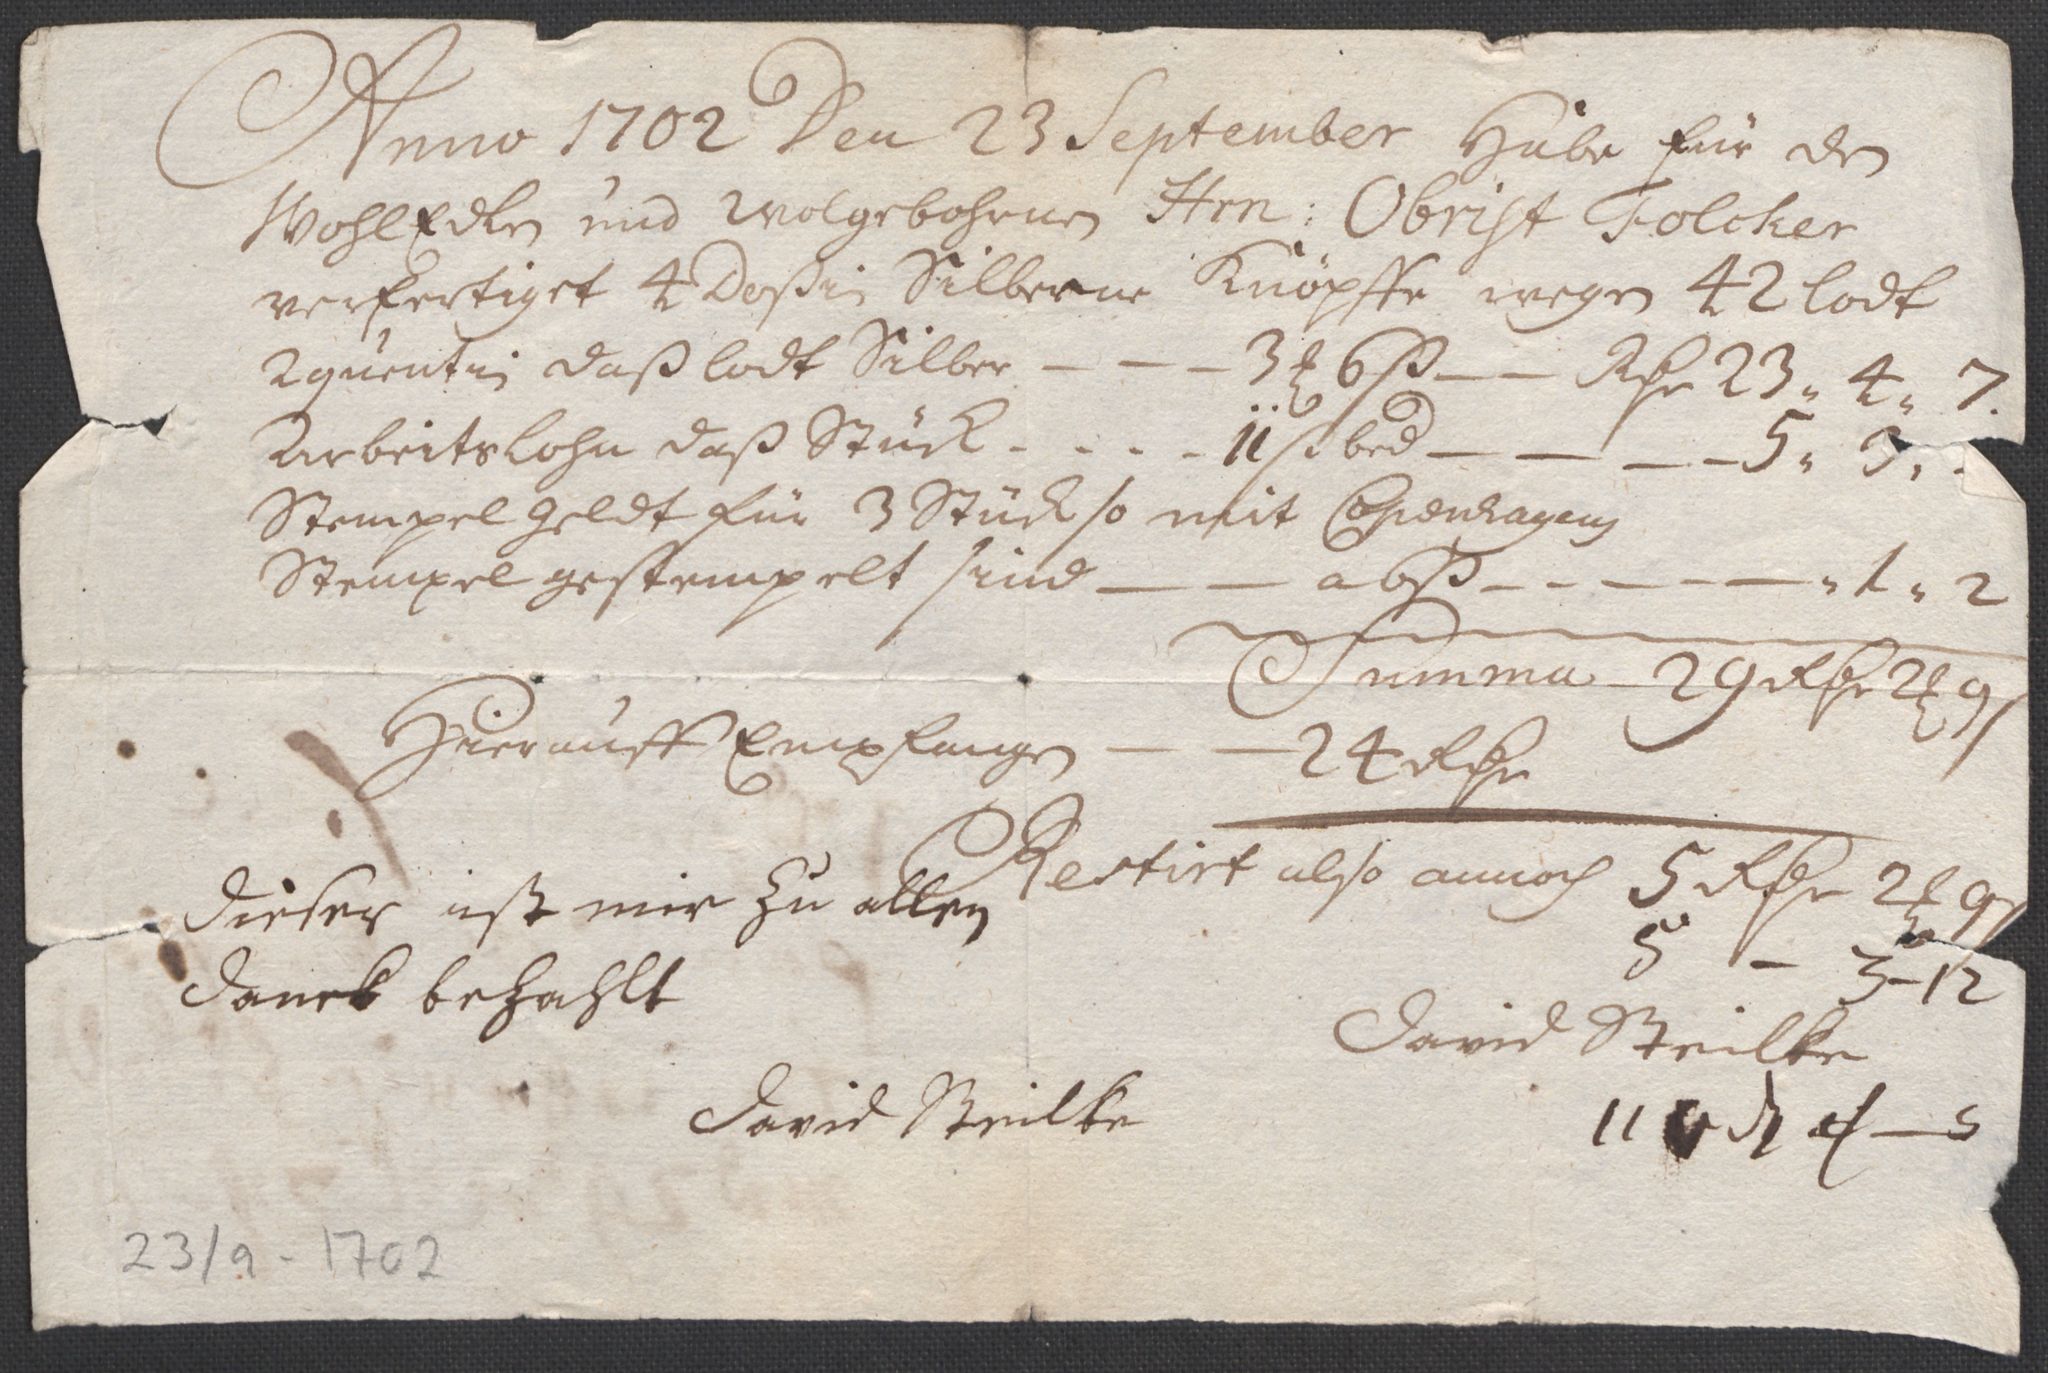 Anno 1702 Den 23 September Habe für den
WohlEdlen und Wolgebohrnen Hrn: Obrist Folcker
verfertiget 4 Dossin Silberne Knöpffe wegen 42 lodt
2 quentin daß lodt Silber - - - 3 ℳ 6 ß - - Rthr 23 „ 4 „ 7.
Arbeitslohn daß Stück - - - - 11 ß - - - - 5 „ 3 „ -
Stempel geldt für 3 Stück so mit Copenhagens
Stempel gestempelt sind - - a 6 ß - - - - - „ 1 „ 2
Summa - 29 Rthr 2 ℳ 9 ß
Hierauff Empfangen - - 24 Rthr
Restirt also annoch 5 Rthr 2 ℳ 9 ß
dieser ist mir zu allen
5 - 3 - 12
danck bezahlt
David Steilke
David Steilke
23/9 - 1702